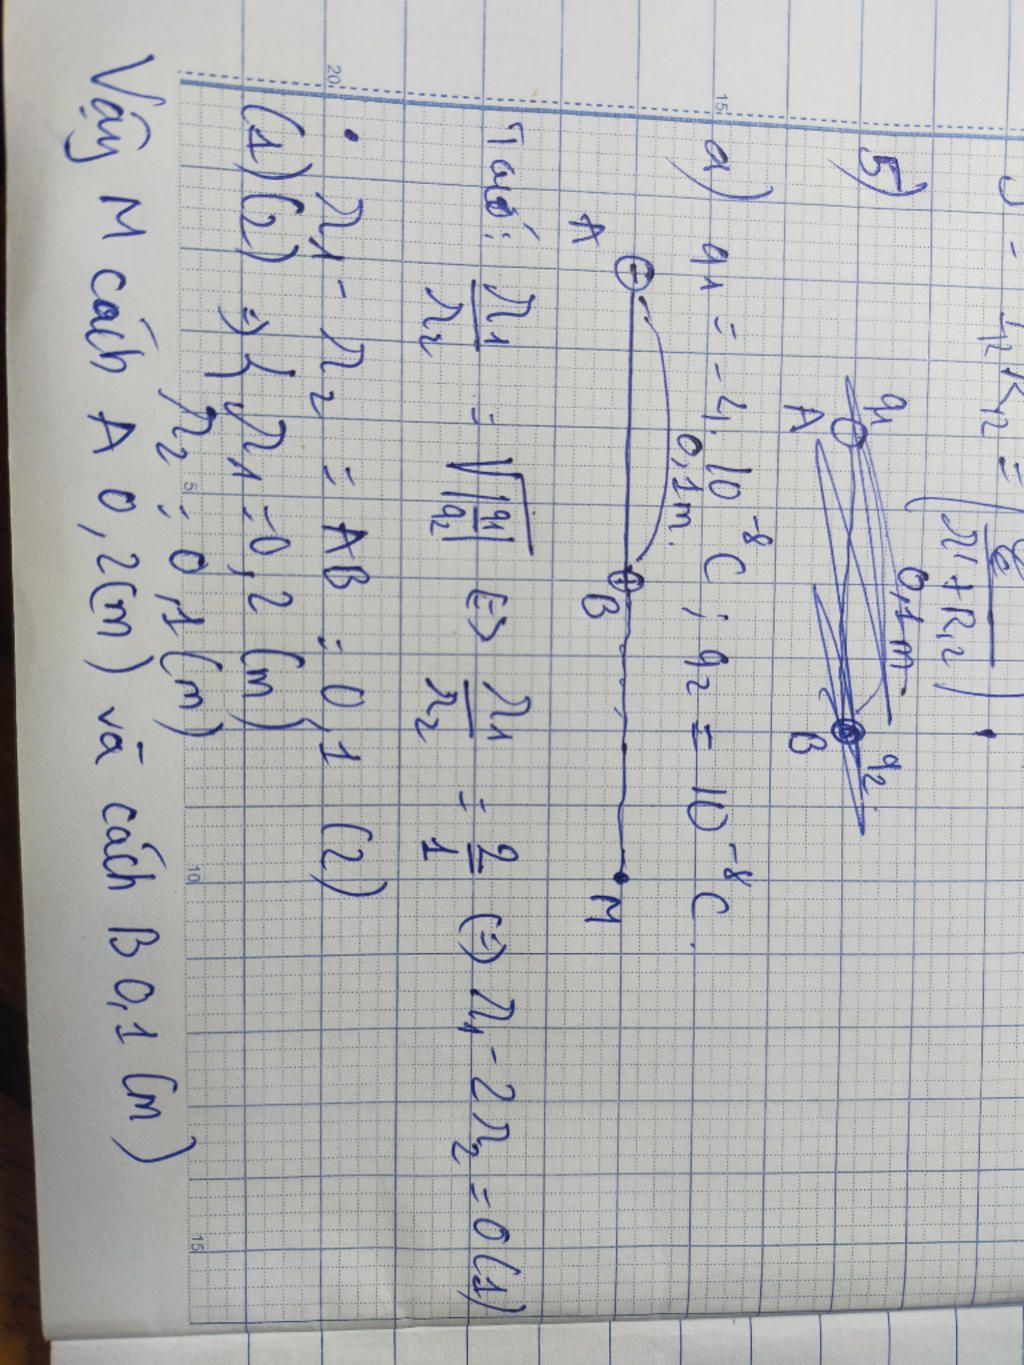 5)
q₁ 0,1m q₂
A B
a) q₁ = -4.10⁻⁸ C ; q₂ = 10⁻⁸ C.
0,1m.
A B M
Ta có: r₁/r₂ = √(|q₁|/|q₂|) (=) r₁/r₂ = 2/1 (=) r₁ - 2r₂ = 0 (1)
• r₁ - r₂ = AB = 0,1 (2)
(1)(2) => { r₁ = 0,2 (m)
r₂ = 0,1 (m)
Vậy M cách A 0,2(m) và cách B 0,1 (m)
20
15
5
10
15